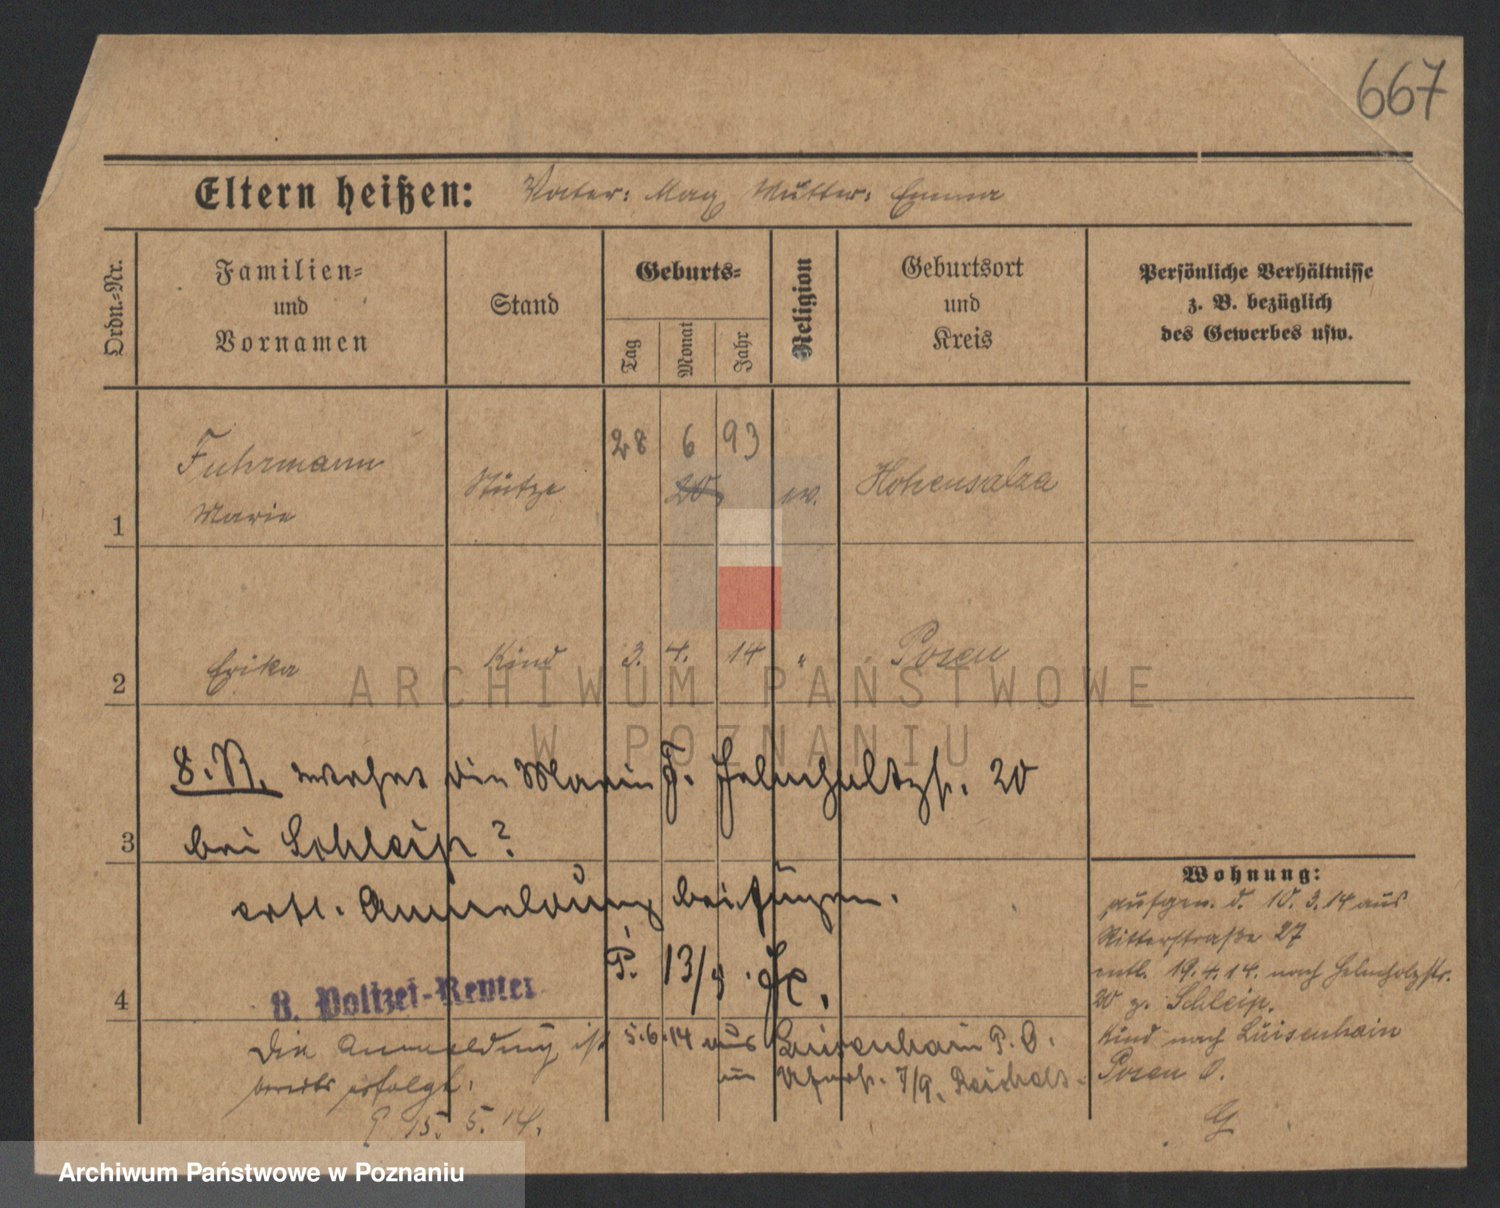 667
Eltern heißen: Vater: Max Mutter: Emma
Ordn.-Nr.
Familien-
und
Vornamen
Stand
Geburts-
Tag
Monat
Jahr
Religion
Geburtsort
und
Kreis
Persönliche Verhältnisse
z. B. bezüglich
des Gewerbes usw.
28 6 93
Fuhrmann
Stütze 20 ev. Hohensalza
1 Marie
2 Erika Kind 3. 4. 14 " Posen
ARCHIWUM PAŃSTWOWE
W POZNANIU
8. R. wohnt die Marie F. Helmholtzstr. 20
3 bei Schleip?
evtl. Anmeldung beifügen.
P. 13/5.
4
8. Polizei-Revier
Die Anmeldung ist
bereits erfolgt.
15. 5. 14.
5.6.14 aus Luisenhain P. O.
7/9.
Wohnung:
aufgen. d. 10. 3. 14 aus
Ritterstraße 27
entl. 19. 4. 14. nach Helmholzstr.
20 z. Schleip.
Kind nach Luisenhain
Posen O.
G
Archiwum Państwowe w Poznaniu